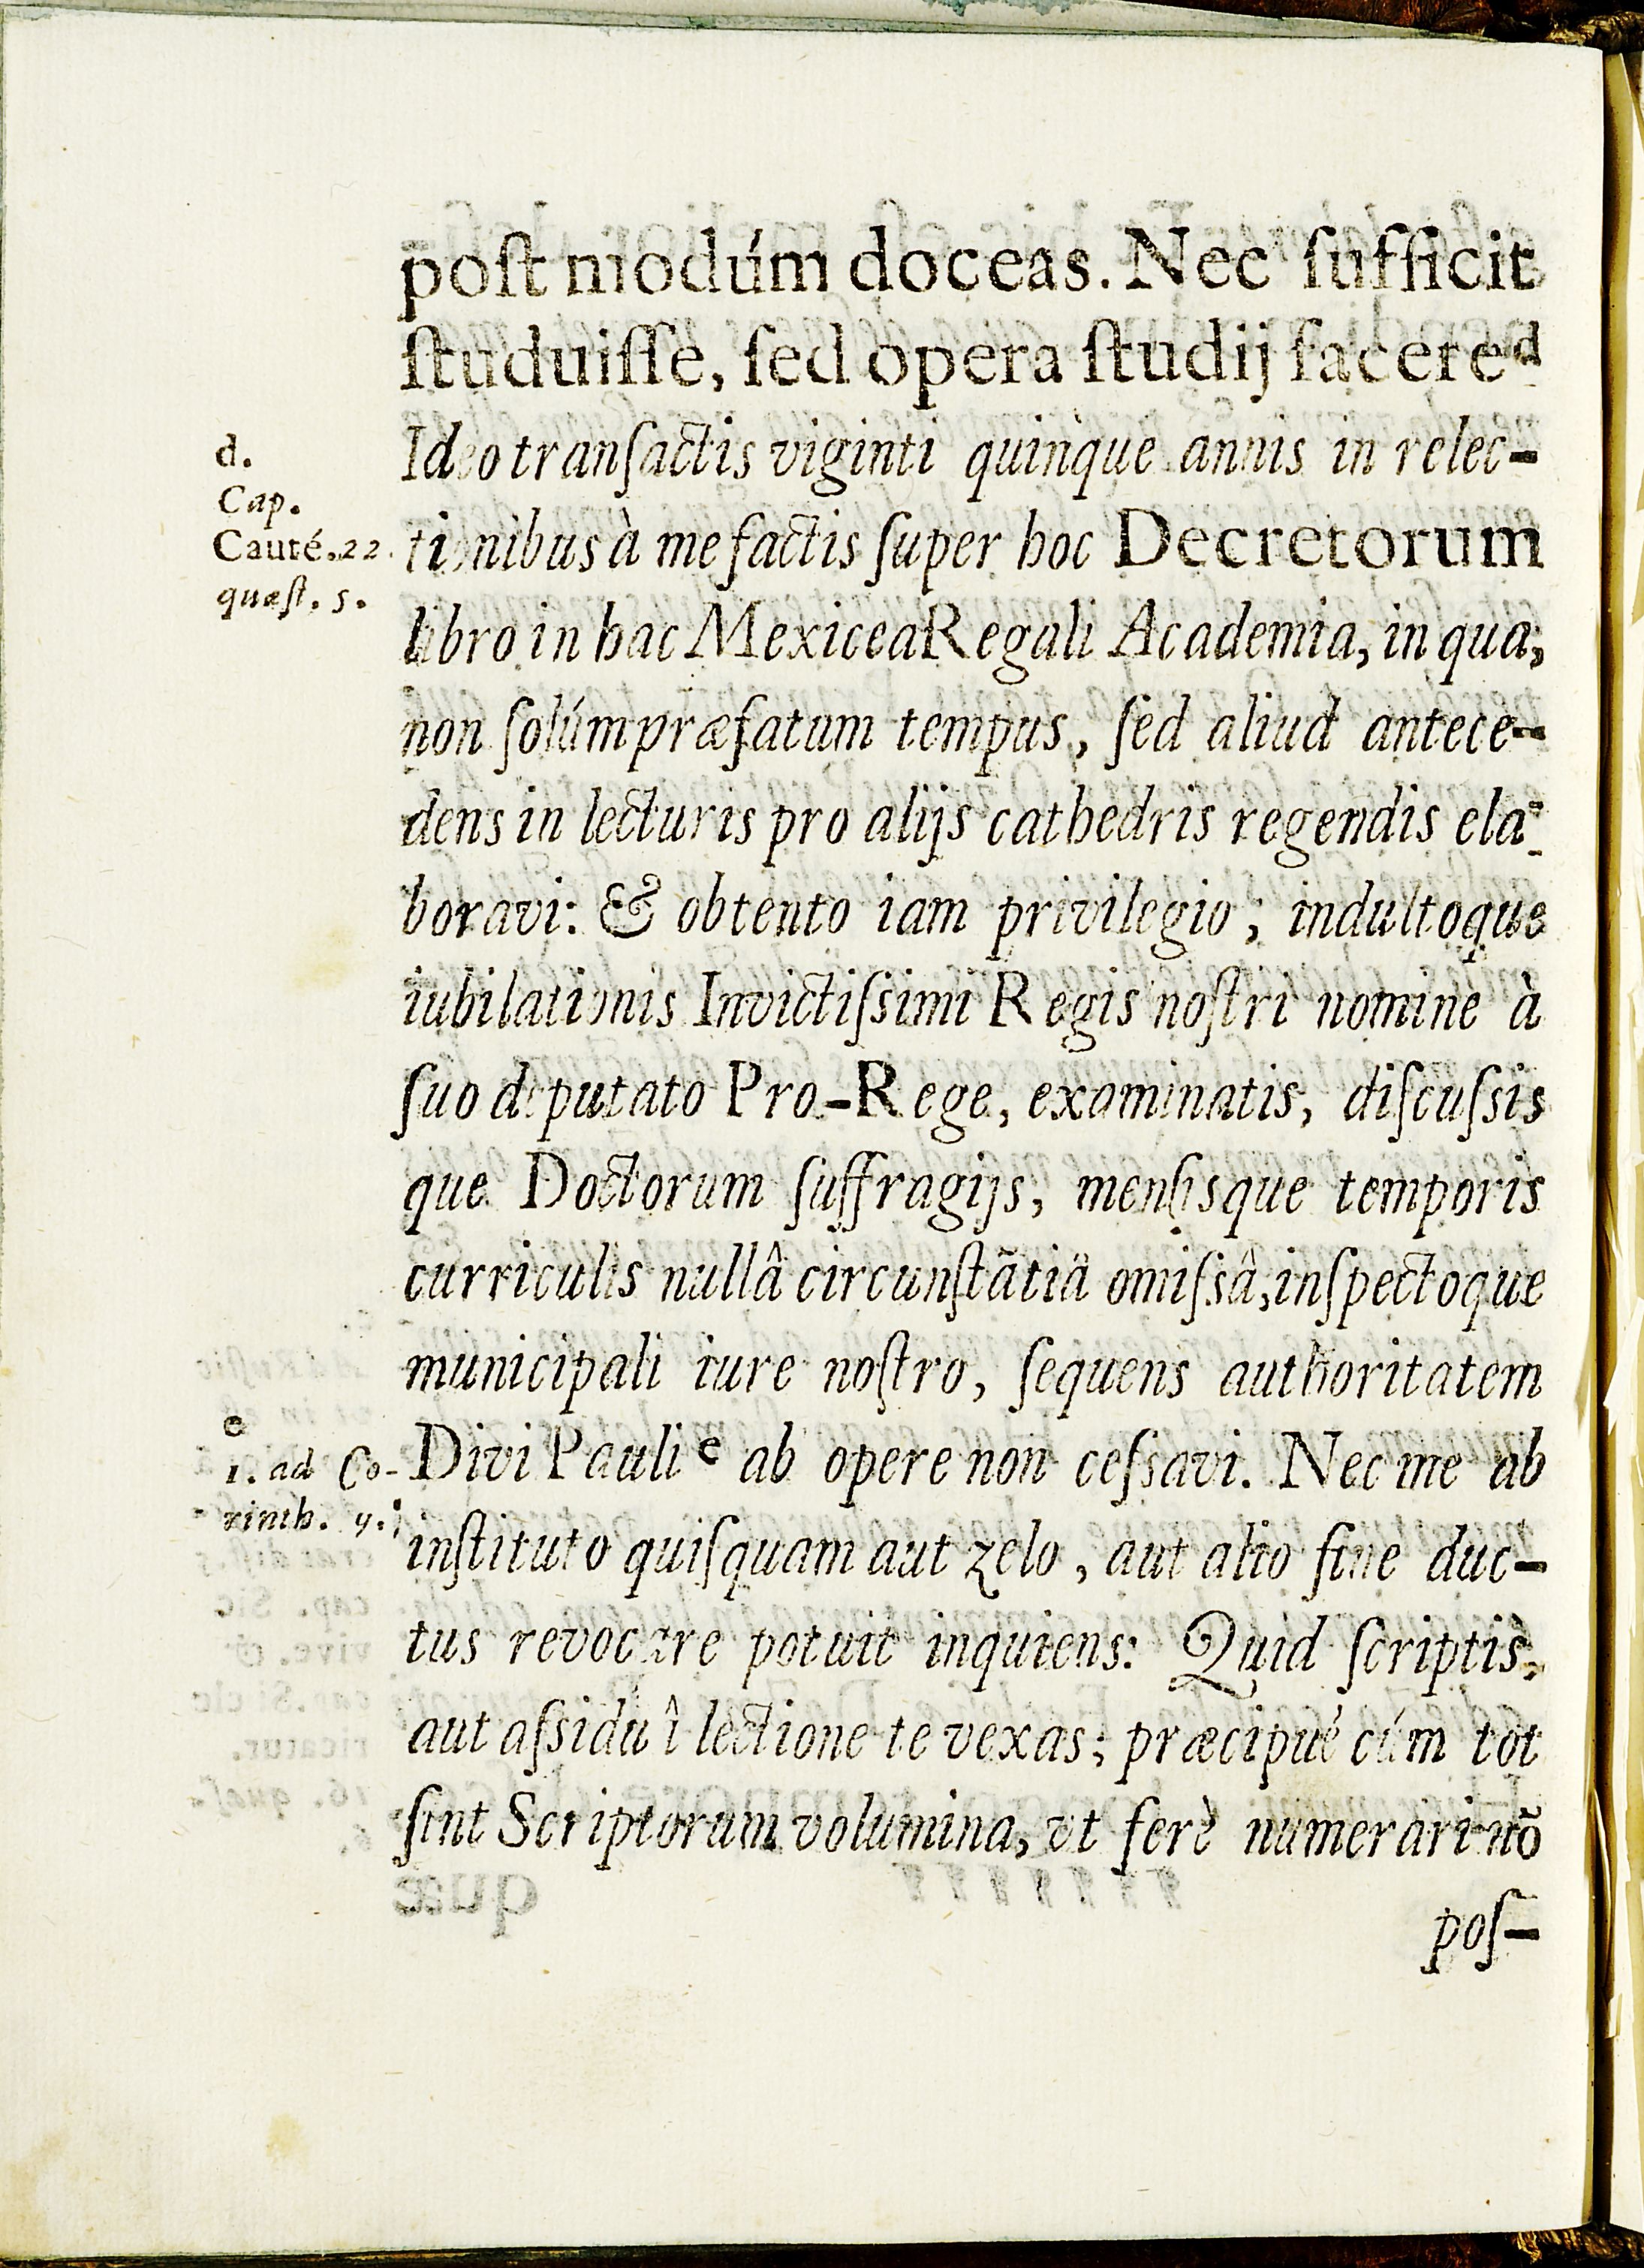 poſt modúm doceas. Nec ſufficit
ſtuduiſſe, ſed opera ſtudij facere d
Ideo tranſactis viginti quinque annis in relec-
tionibus à me factis ſuper hoc Decretorum
libro in hac Mexicea Regali Academia, in qua,
non ſolúm præfatum tempus, ſed aliud antece-
dens in lecturis pro alijs cathedris regendis ela-
boravi: & obtento iam privilegio, indultoque
iubilationis Invictiſsimi Regis noſtri nomine à
ſuo deputato Pro-Rege, examinatis, diſcuſsis
que Doctorum ſuffragijs, menſisque temporis
curriculis nullâ circunſtãtiâ omiſsâ, inſpectoque
municipali iure noſtro, ſequens authoritatem
Divi Pauli e ab opere non ceſsavi. Nec me ab
inſtituto quiſquam aut zelo, aut alio fine duc-
tus revocare potuit inquiens: Quid ſcriptis,
aut aſsiduâ lectione te vexas; præcipué cúm tot
ſint Scriptorum volumina, vt ferè numerari nõ
poſ-
d.
Cap.
Cauté. 22.
quæſt. 5.
e
1. ad Co-
rinth. 9.